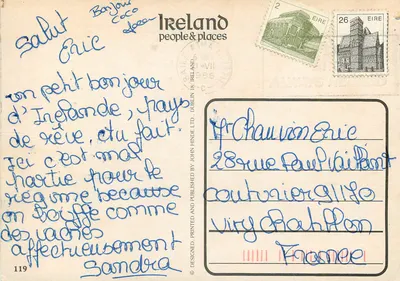 Salut
Eric
Bonjour
coco
Ireland
people & places
2 EIRE
26 EIRE
un petit bonjour
d'Irlande, pays
de rêve, tu fait.
Ici c'est mal
partie pour le
régime because
on bouffe comme
des vaches
affectueusement
Sandra
119
® DESIGNED, PRINTED AND PUBLISHED BY JOHN HINDE LTD., DUBLIN IN IRELAND
Mr Chauvion Eric
28 rue Paul Vaillant
couturier 91170
Viry chatillon
France